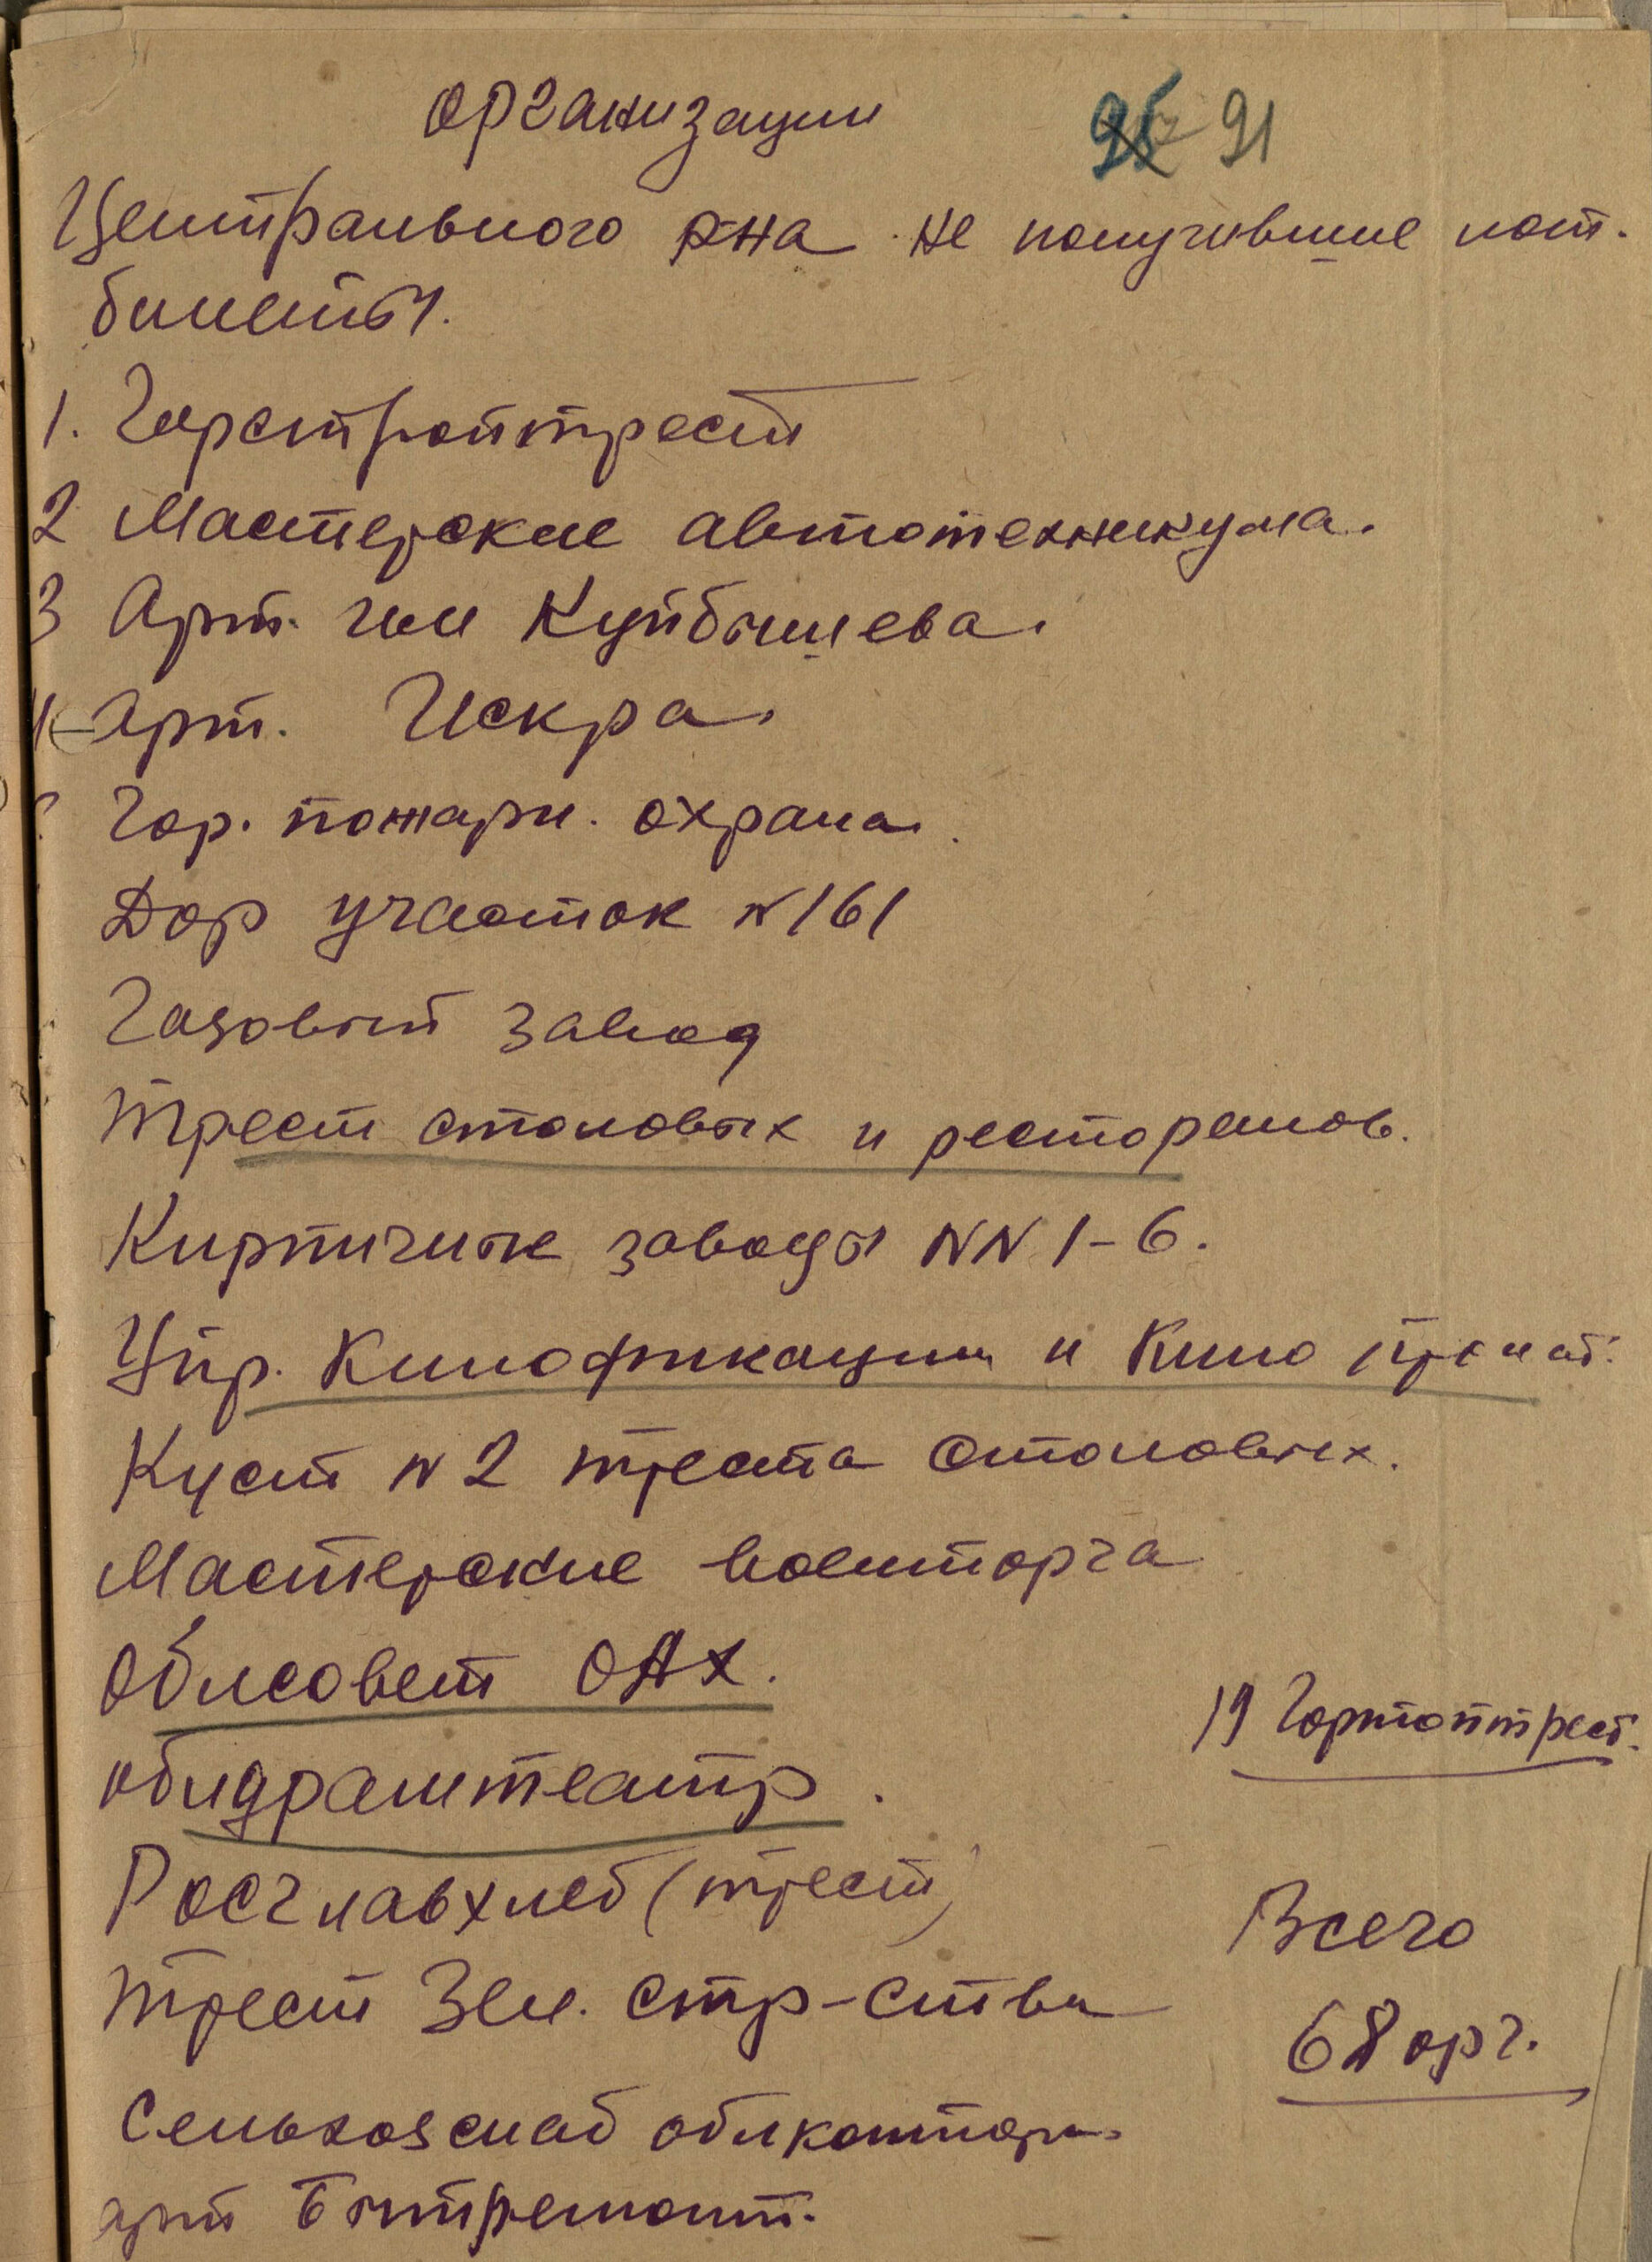 организации
91
Центрального р-на не получившие лот.
билеты.
1. Горстройтрест
2 Мастерские автотехникума.
3 Арт. им Куйбышева.
4 Арт. Искра.
Гор. пожарн. охрана.
Дор участок N 161
Газовый завод
Трест столовых и ресторанов.
Кирпичные заводы NN 1-6.
Упр. Кинофикации и Кино прокат.
Куст N 2 треста столовых.
Мастерские военторга
Облсовет ОАХ.
19 Гортоптрест.
облдрамтеатр.
Росглавхлеб (трест)
Всего
Трест Зел. стр-ства
68 орг.
Сельхозснаб облконтора.
арт Бытремонт.